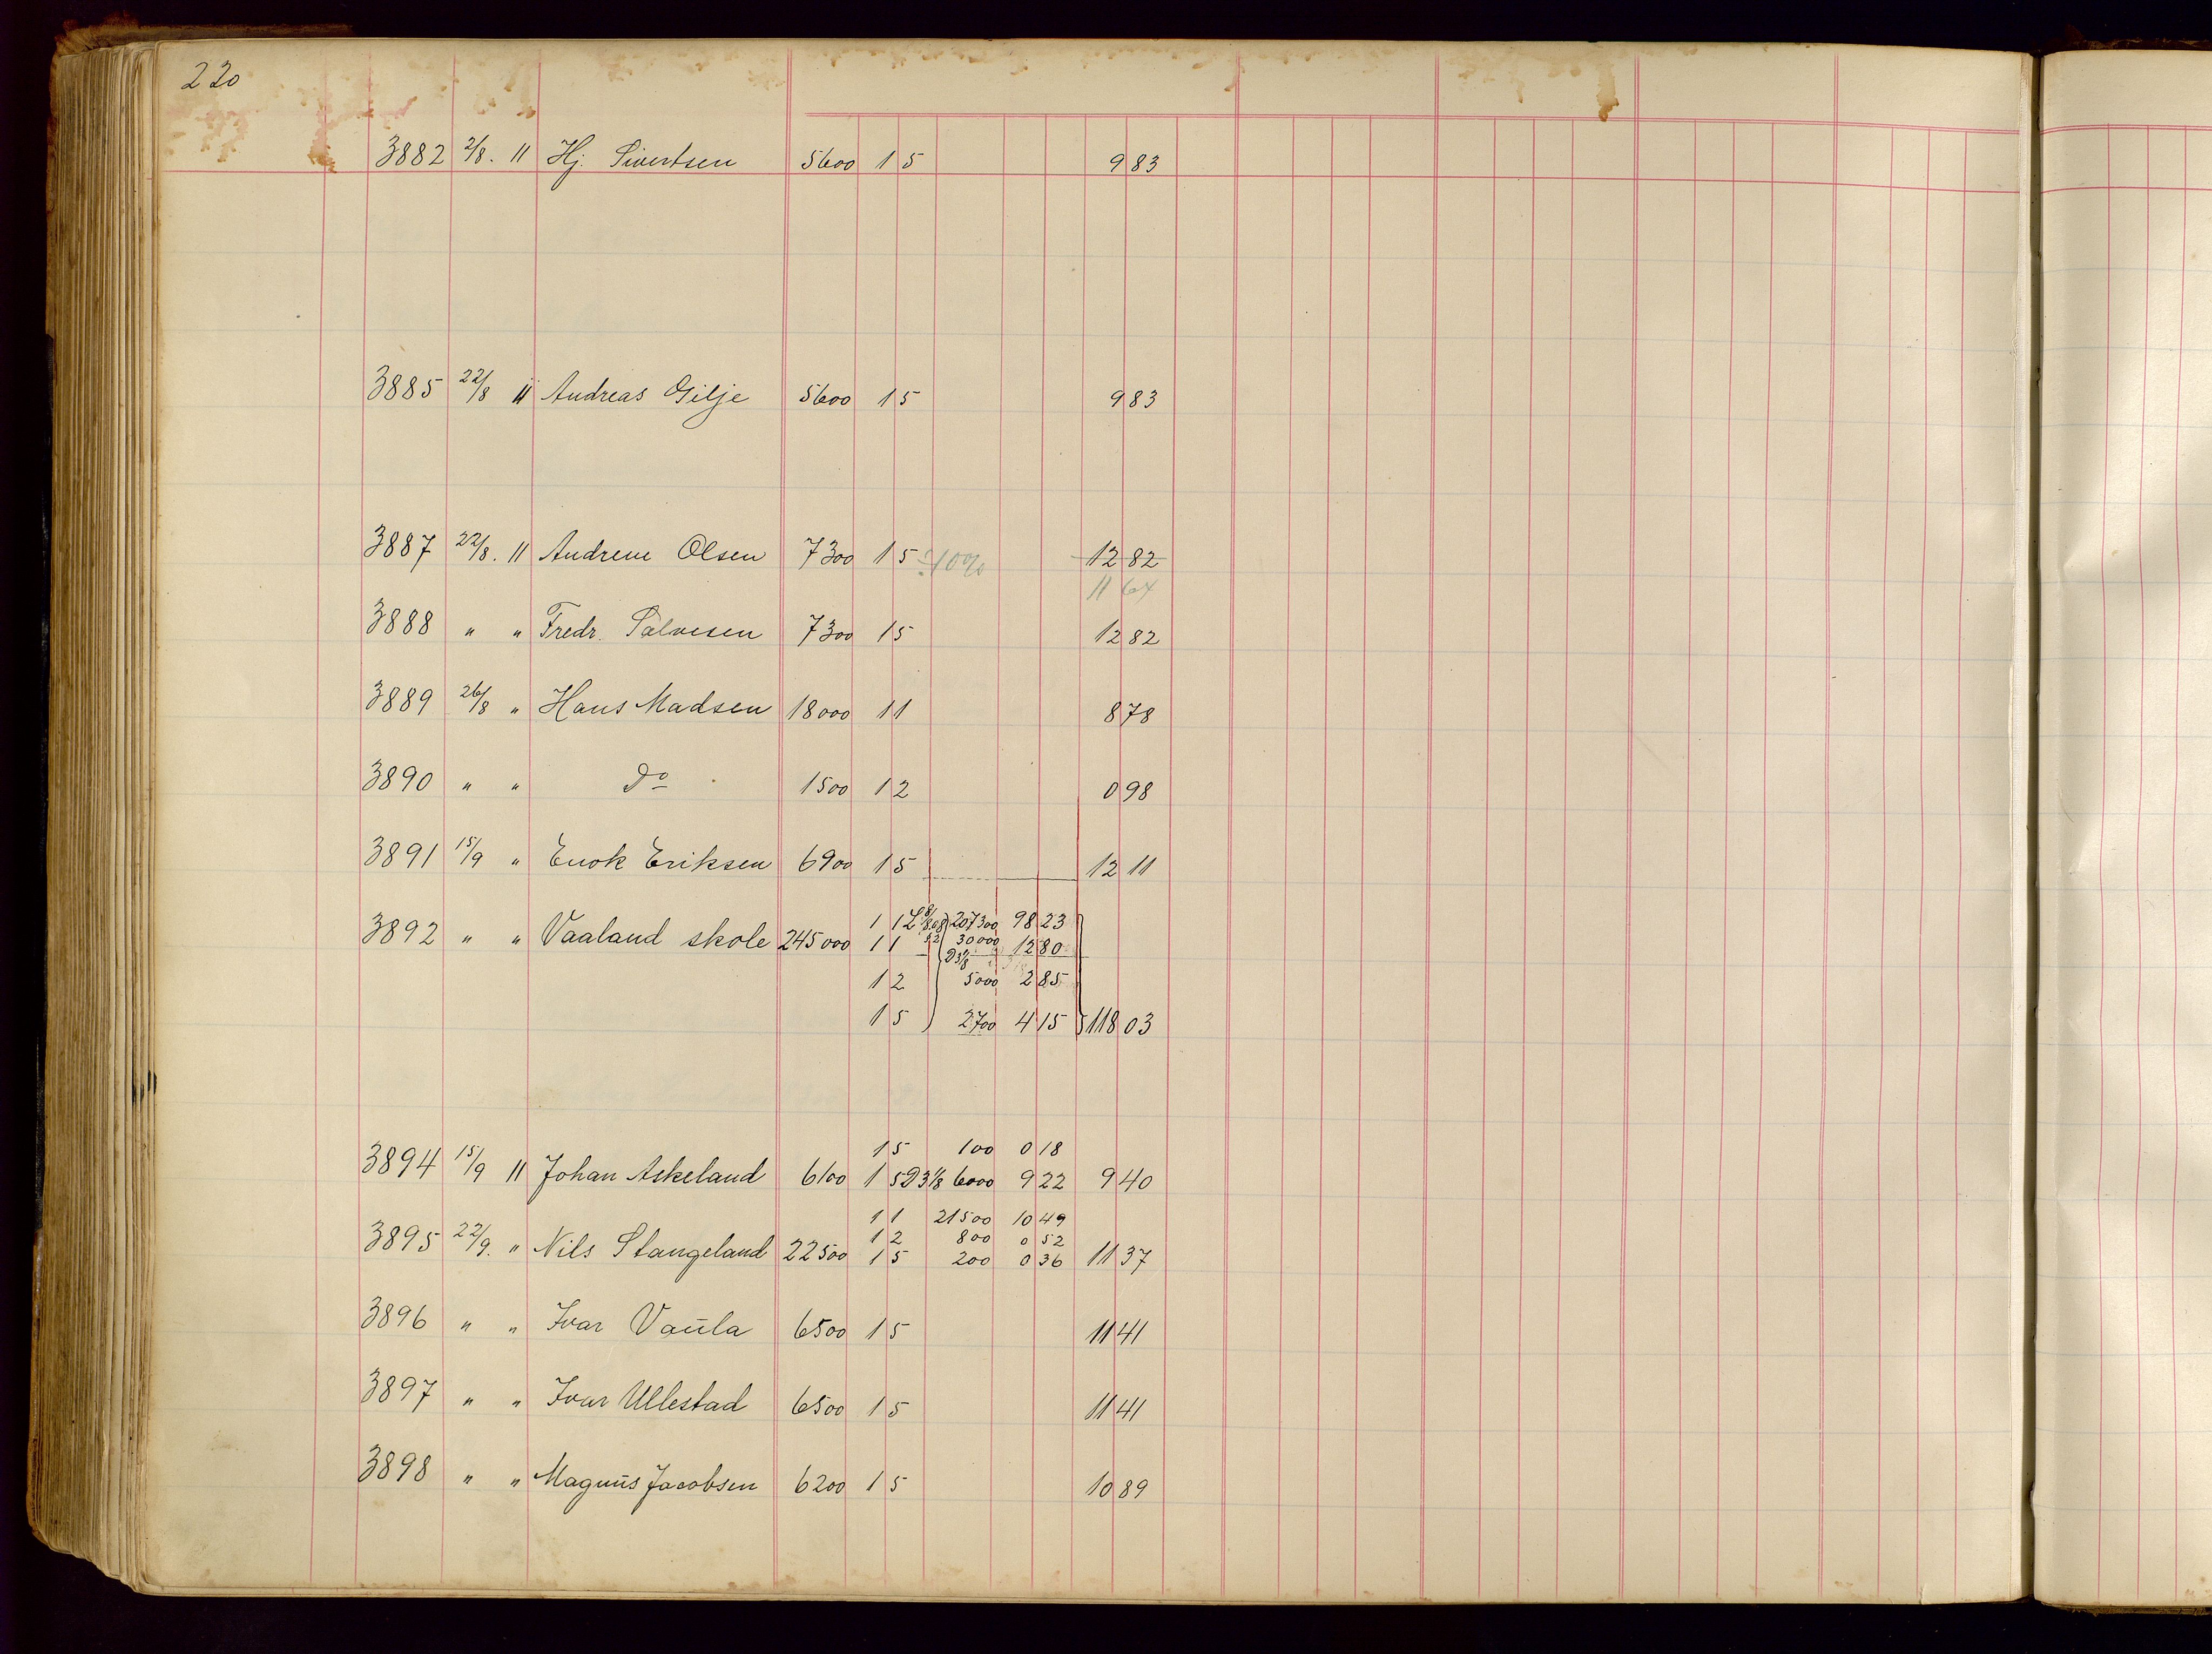 220
3882 2/8. 11 Hj. Sivertsen 5600 1 5 9 83
3885 22/8 11 Andreas Gilje 5600 1 5 9 83
3887 22/8. 11 Andrene Olsen 7300 1 5 ÷10% 12 82
11 64
3888 " " Fredr. Salvesen 7300 1 5 12 82
3889 26/8 " Hans Madsen 18000 1 1 8 78
3890 " " Do 1500 1 2 0 98
3891 15/9 " Enok Eriksen 6900 1 5 12 11
1 1 207300 98 23
3892 " " Vaaland skole 245000 1 1 30000 12 80
D 3 1/8
1 2 5000 2 85
1 5 2700 4 15 118 03
1 5 100 0 18
3894 15/9 11 Johan Askeland 6100 1 5 D 3 1/8 6000 9 22 9 40
1 1 21500 10 49
1 2 800 0 52
3895 22/9. " Nils Stangeland 22500 1 5 200 0 36 11 37
3896 " " Ivar Vaula 6500 1 5 11 41
3897 " " Ivar Ullestad 6500 1 5 11 41
3898 " " Magnus Jacobsen 6200 1 5 10 89